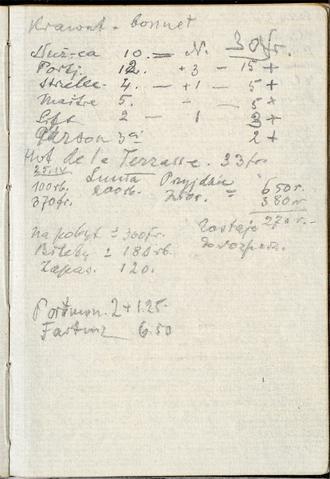 Krawat - bonnet
10. = N. 30 fr.
Portj. 12. + 3 - 15 +
4. - + 1 - 5 +
Maître 5. - 5 +
Lift 2 - 1 3 +
Garson 3 2 +
Hot de la Terrasse. 33 fr.
25.IV Suma Przyjdzie 650 r.
100 rb. 200 rb. 380 r
370 fr. 270 r.-
na pobyt = 300 fr. zostaje
Bilety = 180 rb. do rozp.
Zapas. 120.
Portmon. 2 + 1.25
6.50